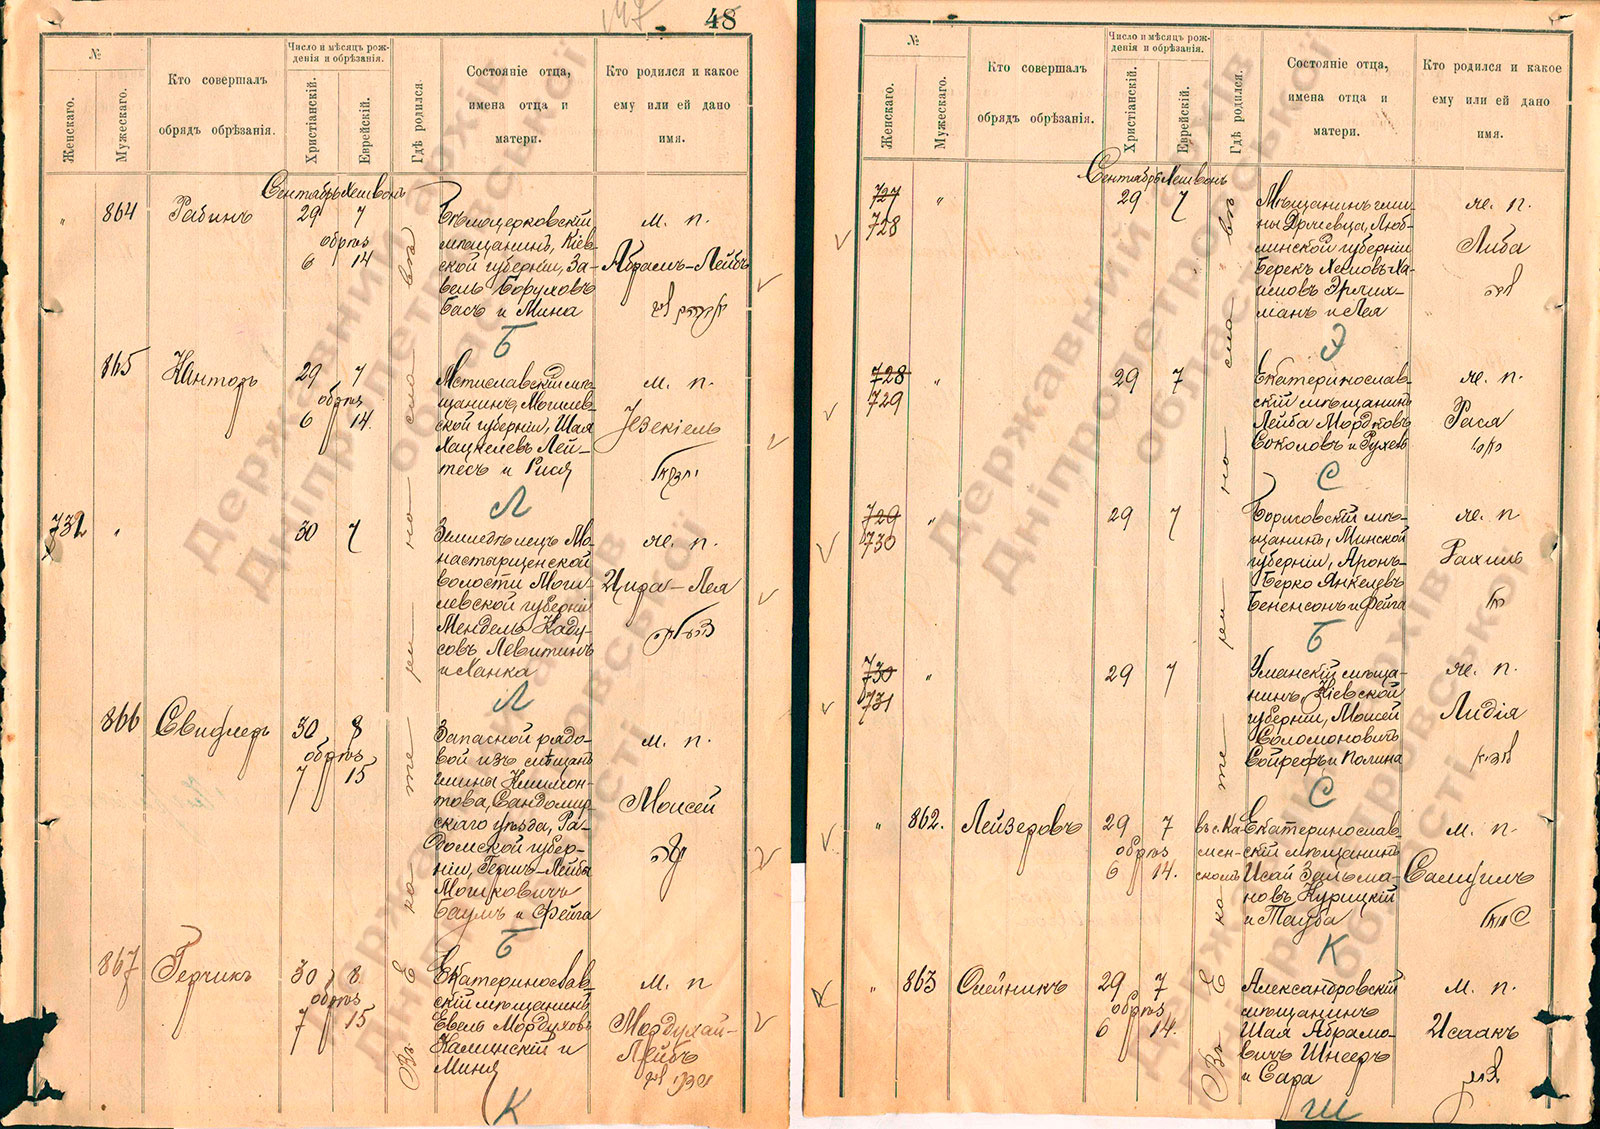 48
№
Женскаго.
Мужескаго.
Кто совершалъ
обрядъ обрѣзанія.
Число и мѣсяцъ рож-
денія и обрѣзанія.
Христіанскій.
Еврейскій.
Гдѣ родился.
Состояніе отца,
имена отца и
матери.
Кто родился и какое
ему или ей дано
имя.
Сентябрь Хешвонъ
864 Рабинъ 29 7
обрѣз
6 14
Бѣлоцерковскій
мѣщанинъ, Кіев-
ской губерніи, За-
вель Боруховъ
Басъ и Мина
м. п.
Абрамъ-Лейбъ
Б
865 Канторъ 29 7
обрѣз
6 14.
Мстиславскій мѣ-
щанинъ, Могилев-
ской губерніи, Шая
Хацкелевъ Лей-
тесъ и Рися
м. п.
Іезекіель
יחזקאל
Л
732 " 30 7
Земледѣлецъ Мо-
настырщенской
волости Моги-
левской губерніи
Мендель
Левитинъ
и Ханка
же. п.
Цира-Лея
Л
866 Свифлеръ 30 8
обрѣз
7 15
Запасной рядо-
вой изъ мѣщанъ
Климон-
това, Сандомир-
скаго уѣзда, Ра-
домской губер-
ніи, Гершъ-Лейба
Мошковичъ
Баумъ и Фейга
м. п.
Моисей
משה
Б
867 Герчикъ 30 8
обрѣз
7 15
Екатеринослав
скій мѣщанинъ
Евель Мордуховъ
Калинскій и
Миня
м. п
Мордухай-
Лейбъ
К
Въ Екатеринославѣ
№
Женскаго.
Мужескаго.
Кто совершалъ
обрядъ обрѣзанія.
Число и мѣсяцъ рож-
денія и обрѣзанія.
Христіанскій.
Еврейскій.
Гдѣ родился.
Состояніе отца,
имена отца и
матери.
Кто родился и какое
ему или ей дано
имя.
Сентябрь Хешвонъ
727 " 29 7
728
Мѣщанинъ гми-
ны Люб-
линской губерніи
Берекъ Ха-
имовъ Эрлих-
манъ и Лея
же. п.
Либа
Э
728 " 29 7
729
Екатеринослав-
скій мѣщанинъ
Лейба Мордковъ
Соколовъ и Рухель
же. п.
Рася
С
729 " 29 7
730
Борисовскій мѣ-
щанинъ, Минской
губерніи, Аронъ-
Берко Янкелевъ
Бененсонъ и Фейга
же. п
Рахиль
רחל
Б
730 " 29 7
731
Уманскій мѣща-
нинъ, Кіевской
губерніи, Моисей
Соломоновичъ
Сойреръ и Полина
же. п.
Лидія
С
" 862. Лейзеровъ 29 7
обрѣз
6 14.
въ с. Ка-
мен-
скомъ
Екатеринослав-
скій мѣщанинъ
Исай Зельма-
новъ Курицкій
и Тауба
м. п.
Самуилъ
К
" 863 Олейникъ 29 7
обрѣз
6 14.
Александровскій
мѣщанинъ
Шая Абрамо-
вичъ Шнееръ
и Сара
м. п.
Исаакъ
Ш
Въ Екатеринославѣ
Державний архів
Дніпропетровської
області